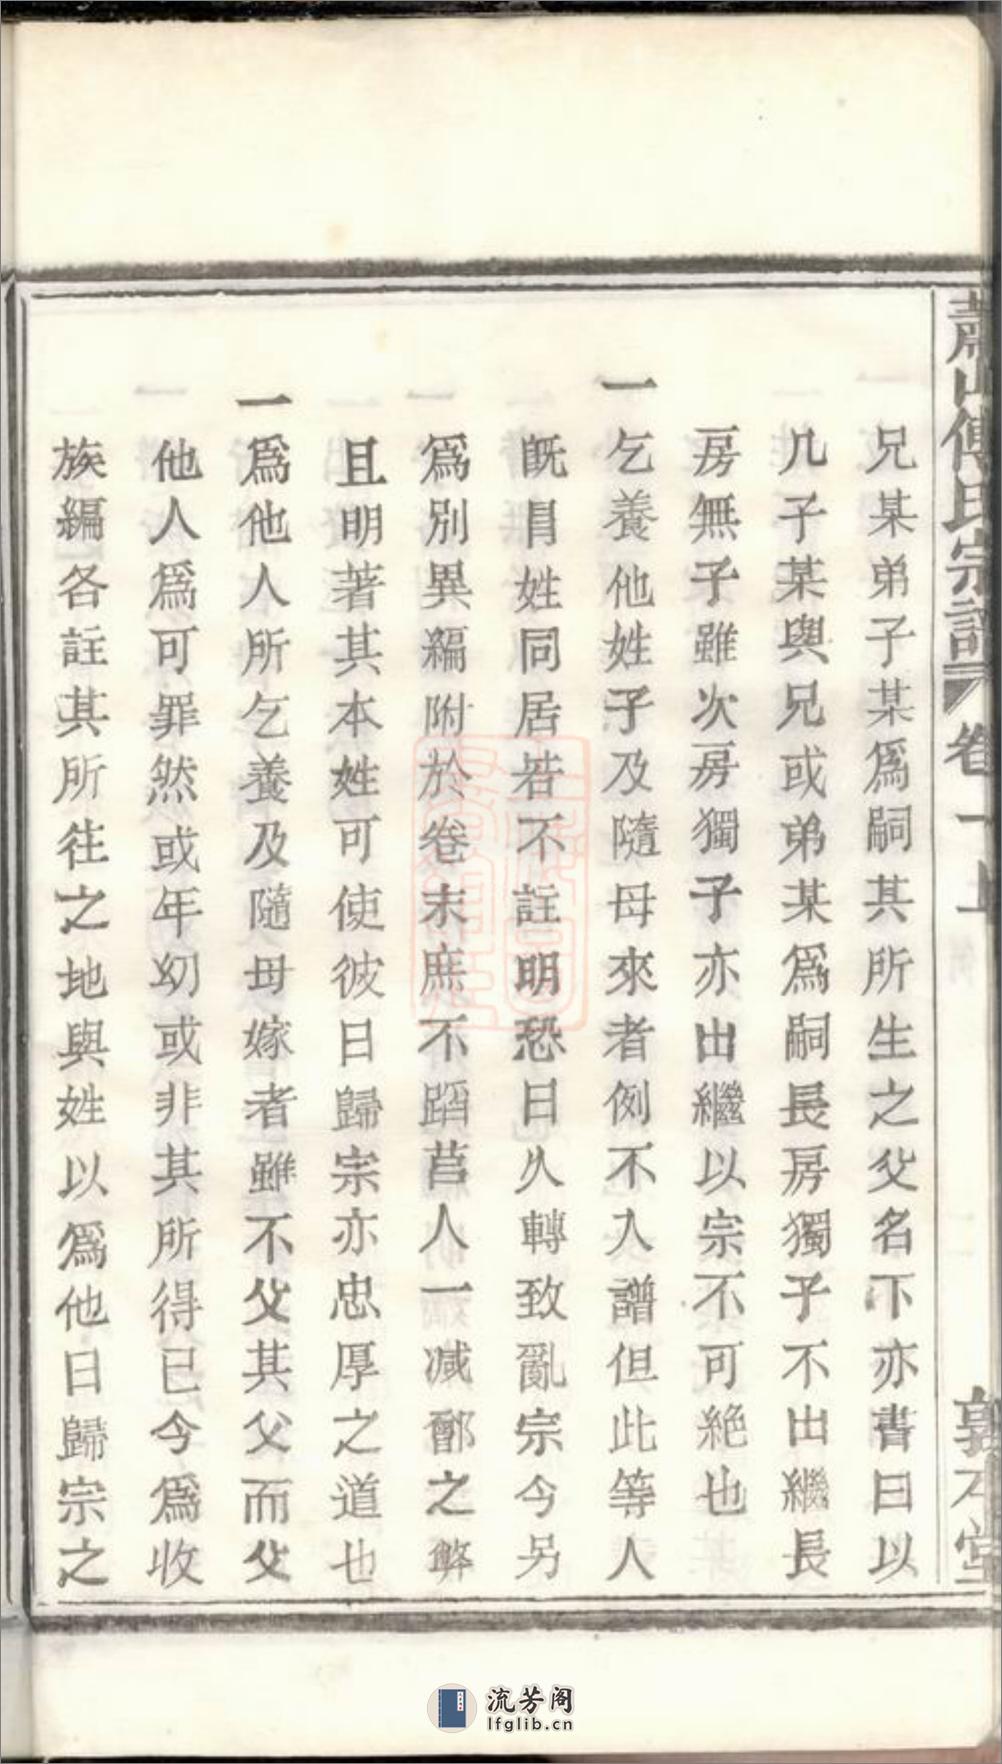 蕭山傅氏宗譜 卷一上 敦本堂
兄某弟子某爲嗣其所生之父名下亦書曰以
几子某與兄或弟某爲嗣長房獨子不出繼長
房無子雖次房獨子亦出繼以宗不可絶也
一乞養他姓子及隨母來者例不入譜但此等人
旣冐姓同居若不註明恐日久轉致亂宗今另
爲別異編附於卷末庶不蹈莒人一减鄫之弊
且明著其本姓可使彼日歸宗亦忠厚之道也
一爲他人所乞養及隨母嫁者雖不父其父而父
他人爲可罪然或年幼或非其所得已今爲收
族編各註其所往之地與姓以爲他日歸宗之
流芳阁
lfglib.cn